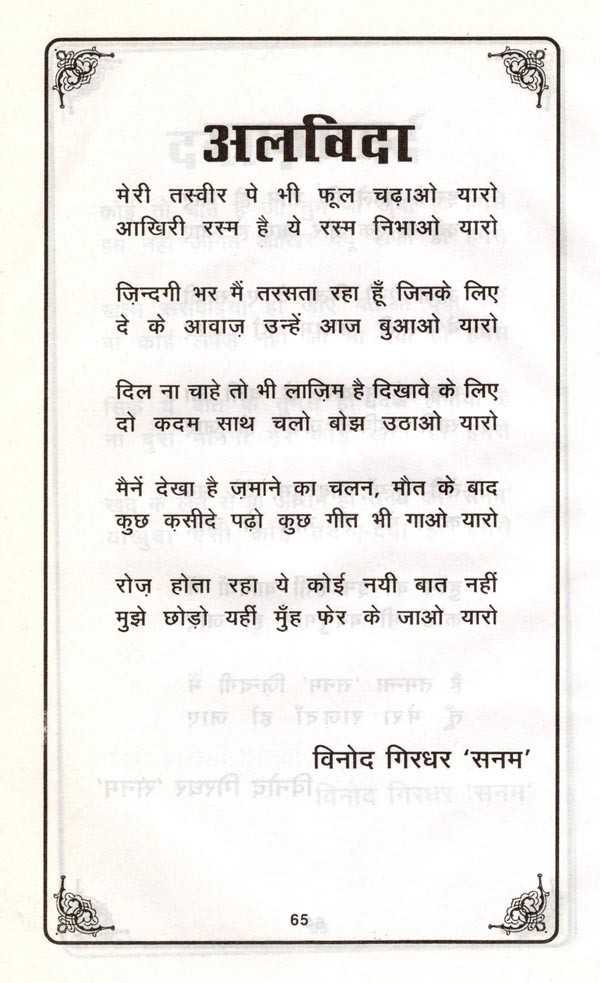 अलविदा
मेरी तस्वीर पे भी फूल चढ़ाओ यारो
आखिरी रस्म है ये रस्म निभाओ यारो
ज़िन्दगी भर मैं तरसता रहा हूँ जिनके लिए
दे के आवाज़ उन्हें आज बुआओ यारो
दिल ना चाहे तो भी लाज़िम है दिखावे के लिए
दो कदम साथ चलो बोझ उठाओ यारो
मैनें देखा है ज़माने का चलन, मौत के बाद
कुछ क़सीदे पढ़ो कुछ गीत भी गाओ यारो
रोज़ होता रहा ये कोई नयी बात नहीं
मुझे छोड़ो यहीं मुँह फेर के जाओ यारो
विनोद गिरधर ‘सनम’
65